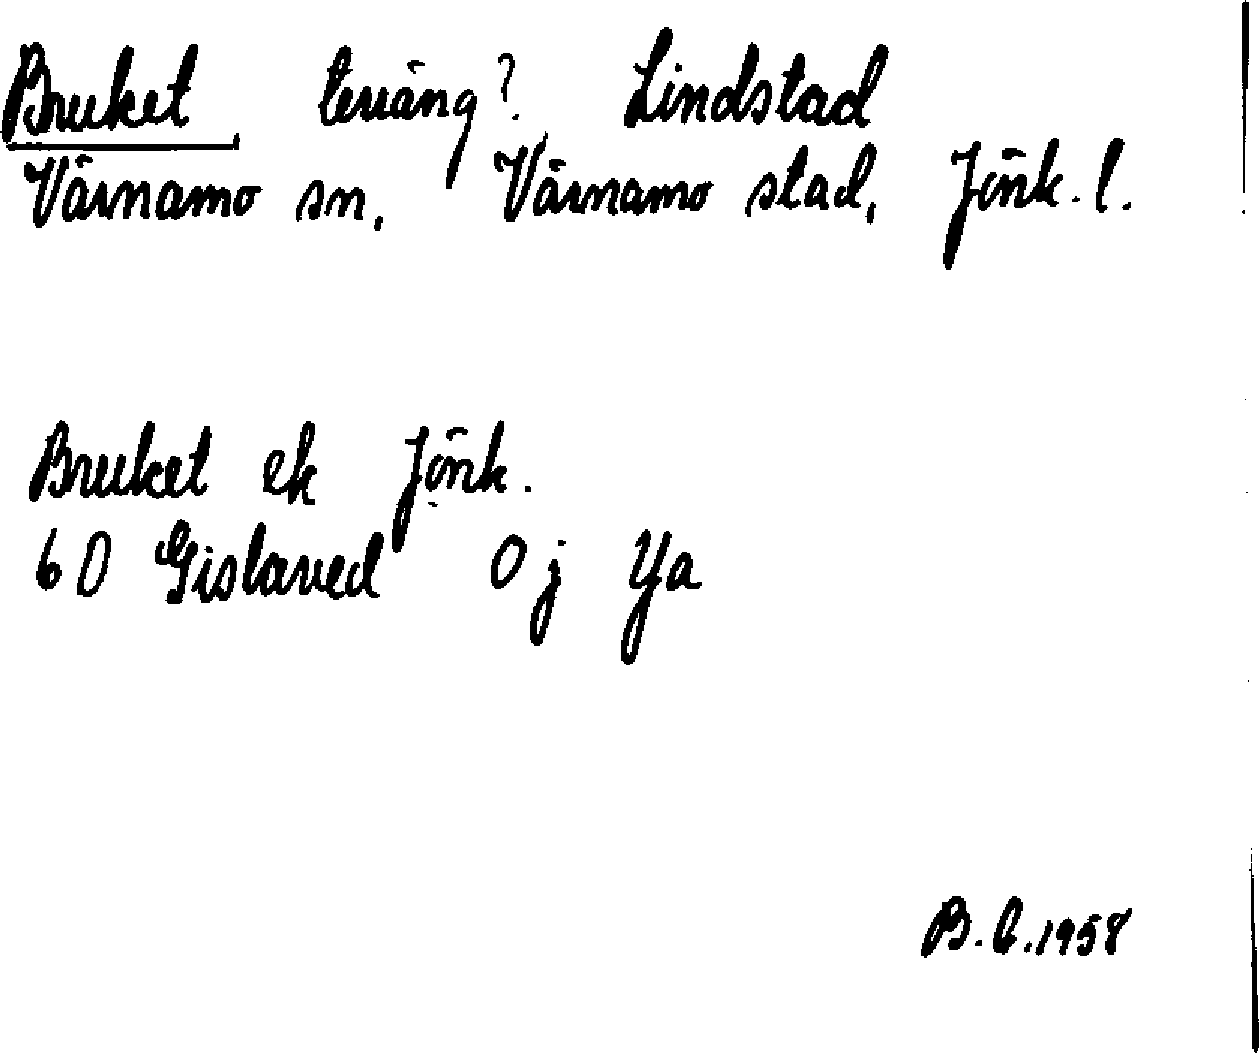 Bruket, teräng? Lindstad
Värnamo sn. Värnamo stad, Jönk. l.
Bruket ek Jönk.
6 D Gislaved 0 j Ya
B.C.1958